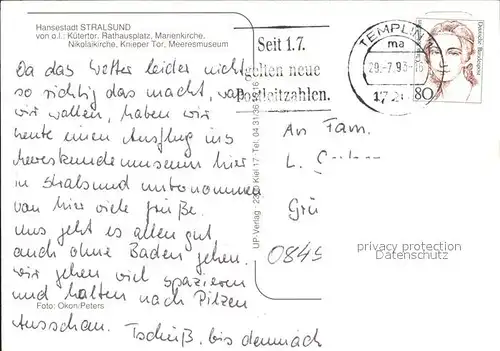 Hansestadt STRALSUND
von o.l.: Kütertor, Rathausplatz, Marienkirche,
Nikolaikirche, Knieper Tor, Meeresmuseum
Da das Wetter leider nicht
so richtig das macht, was
wir wollen, haben wir
heute einen Ausflug ins
Meereskundemuseum hier
in Stralsund unternommen
von hier viele Grüße.
Uns geht es allen gut
auch ohne Baden gehen.
Wir gehen viel spazieren
und halten nach Pilzen
Ausschau. Tschüß, bis demnäch
Foto: Okon/Peters
UP-Verlag · 2300 Kiel 17 · Tel. 04 31/36
Seit 1.7.
gelten neue
Postleitzahlen.
TEMPLIN
ma
29.-7.93-16
172
Deutsche Bundespost
80
An Fam.
L.
Grü
0849
privacy protection
watermark